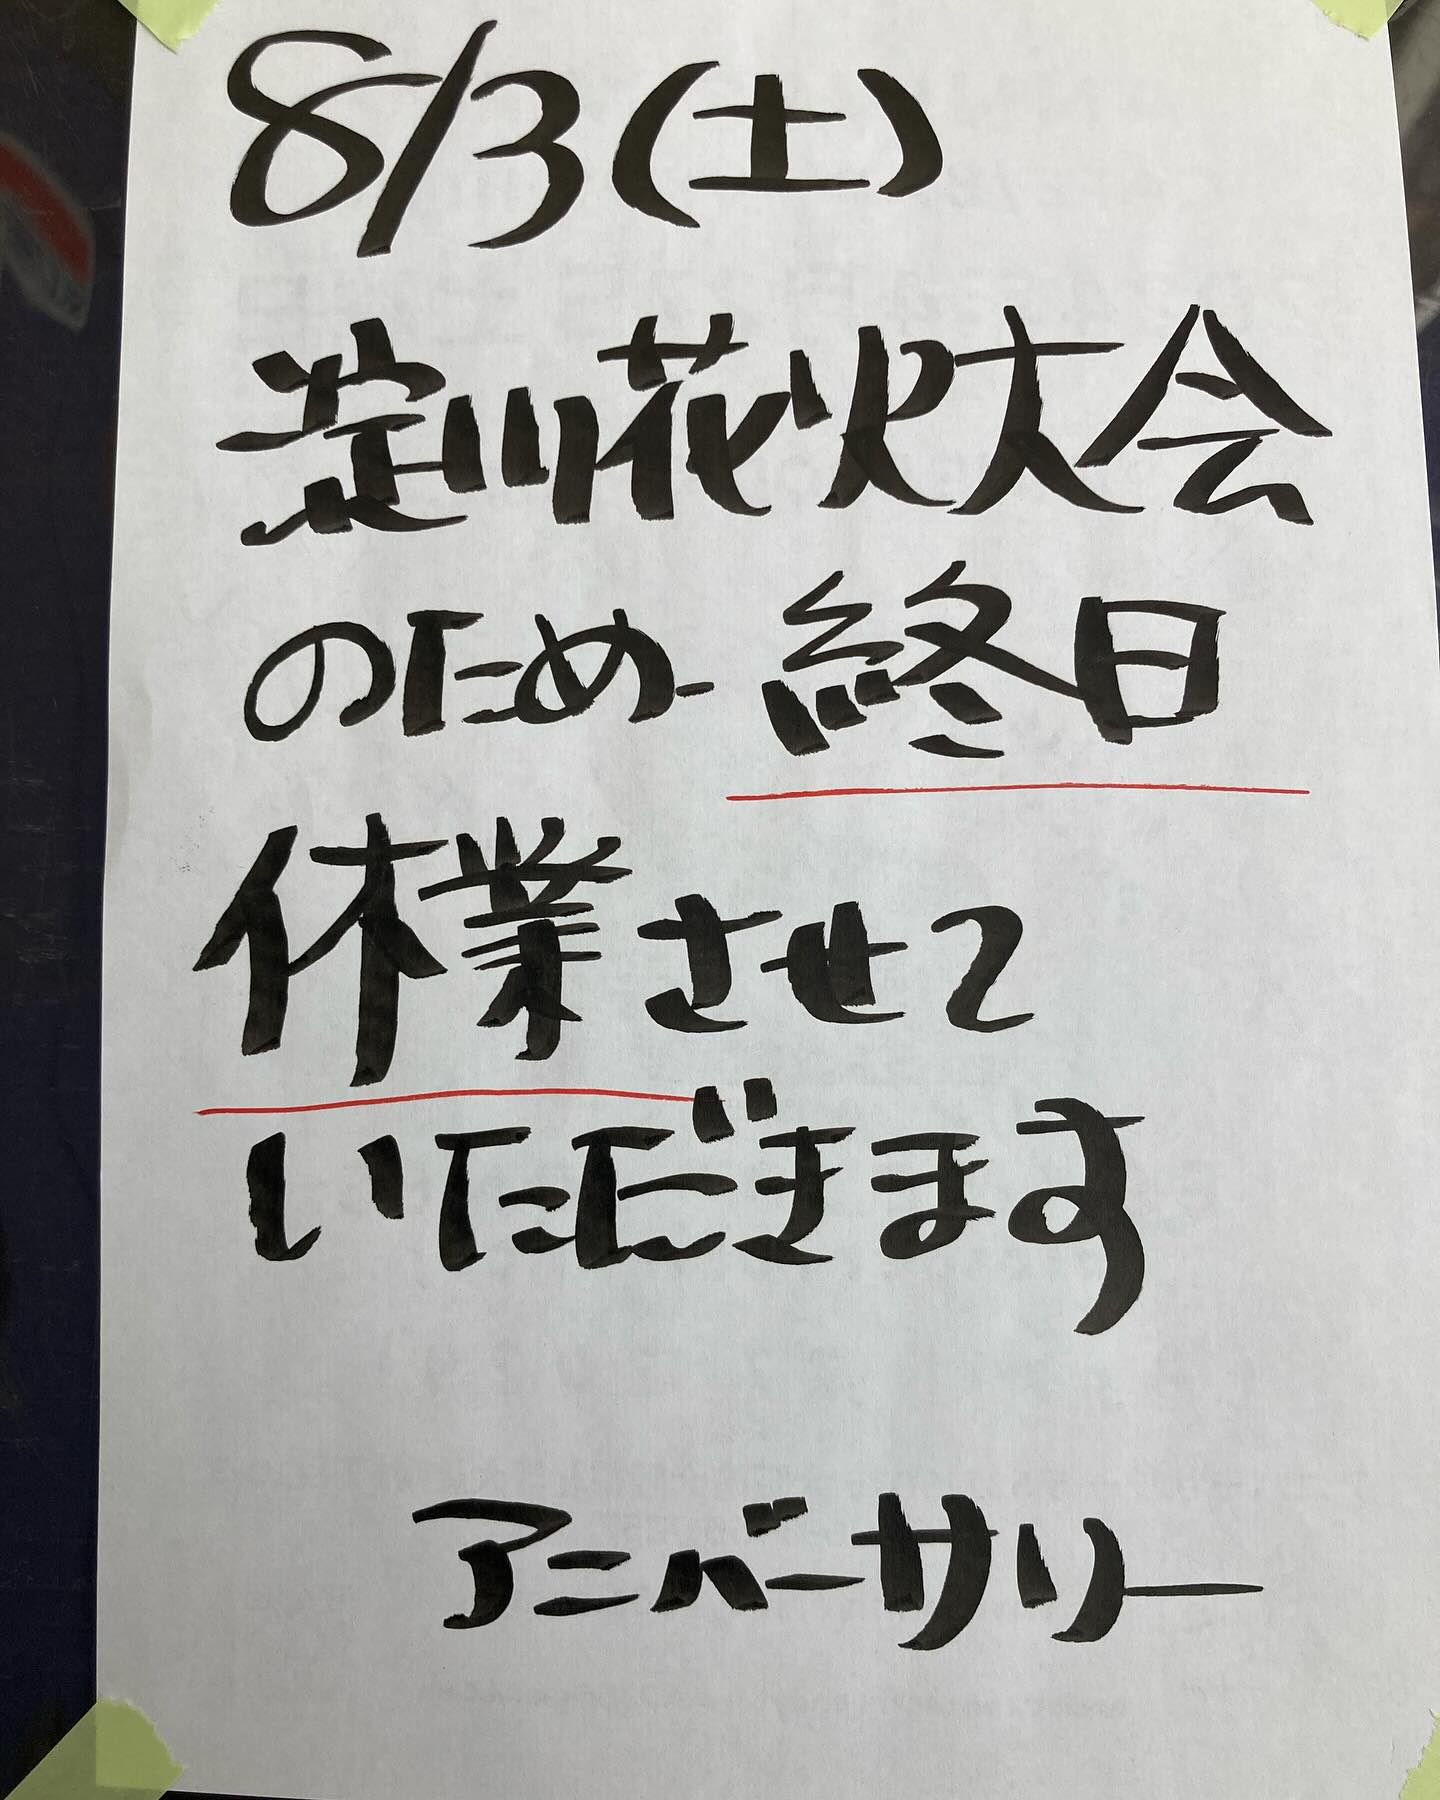 8/3(土)
淀川花火大会
のため 終日
休業させて
いただきます
アニバーサリー